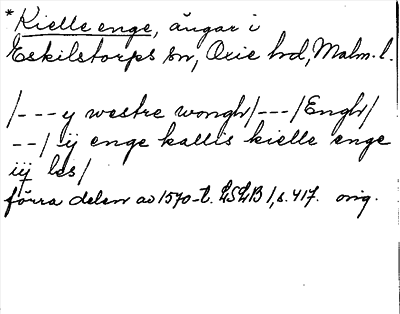 *Kielle enge, ängar i
Eskilstorps sn, Oxie hd, Malm. l.
/--- y westre wongh/---/Engh/
--/ ÿ enge kallis kielle enge
iÿ les/
förra delen av 1570-t. LSLB 1, s. 417. orig.